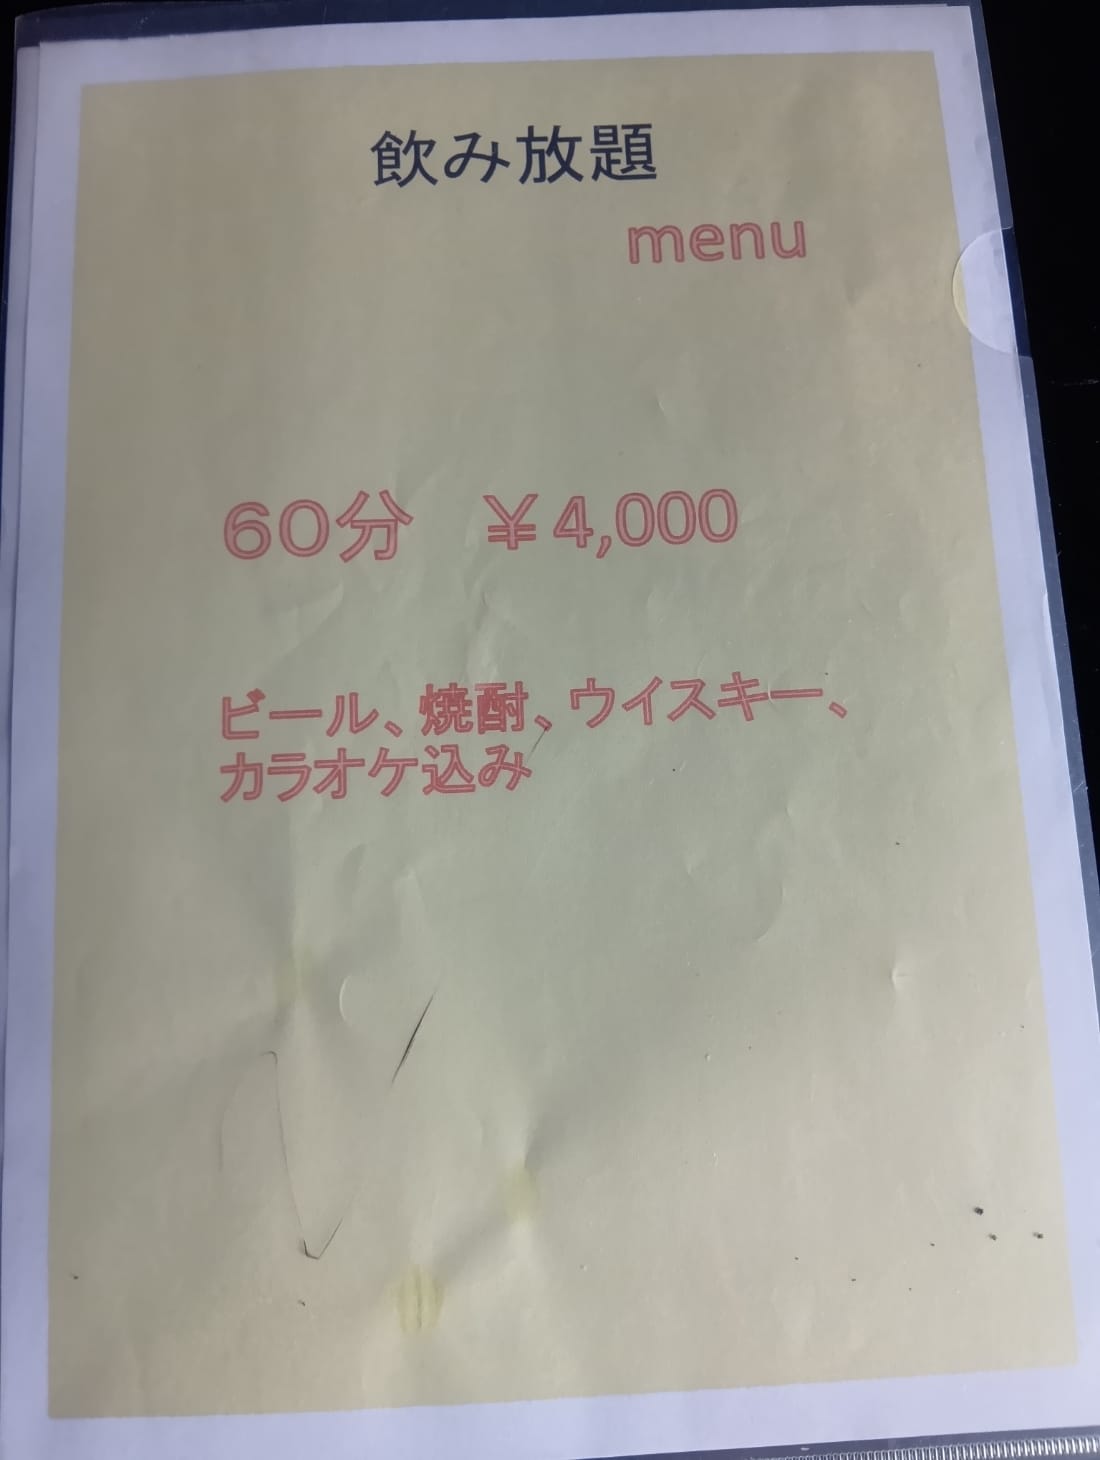 飲み放題
menu
60分　¥4,000
ビール、焼酎、ウイスキー、
カラオケ込み